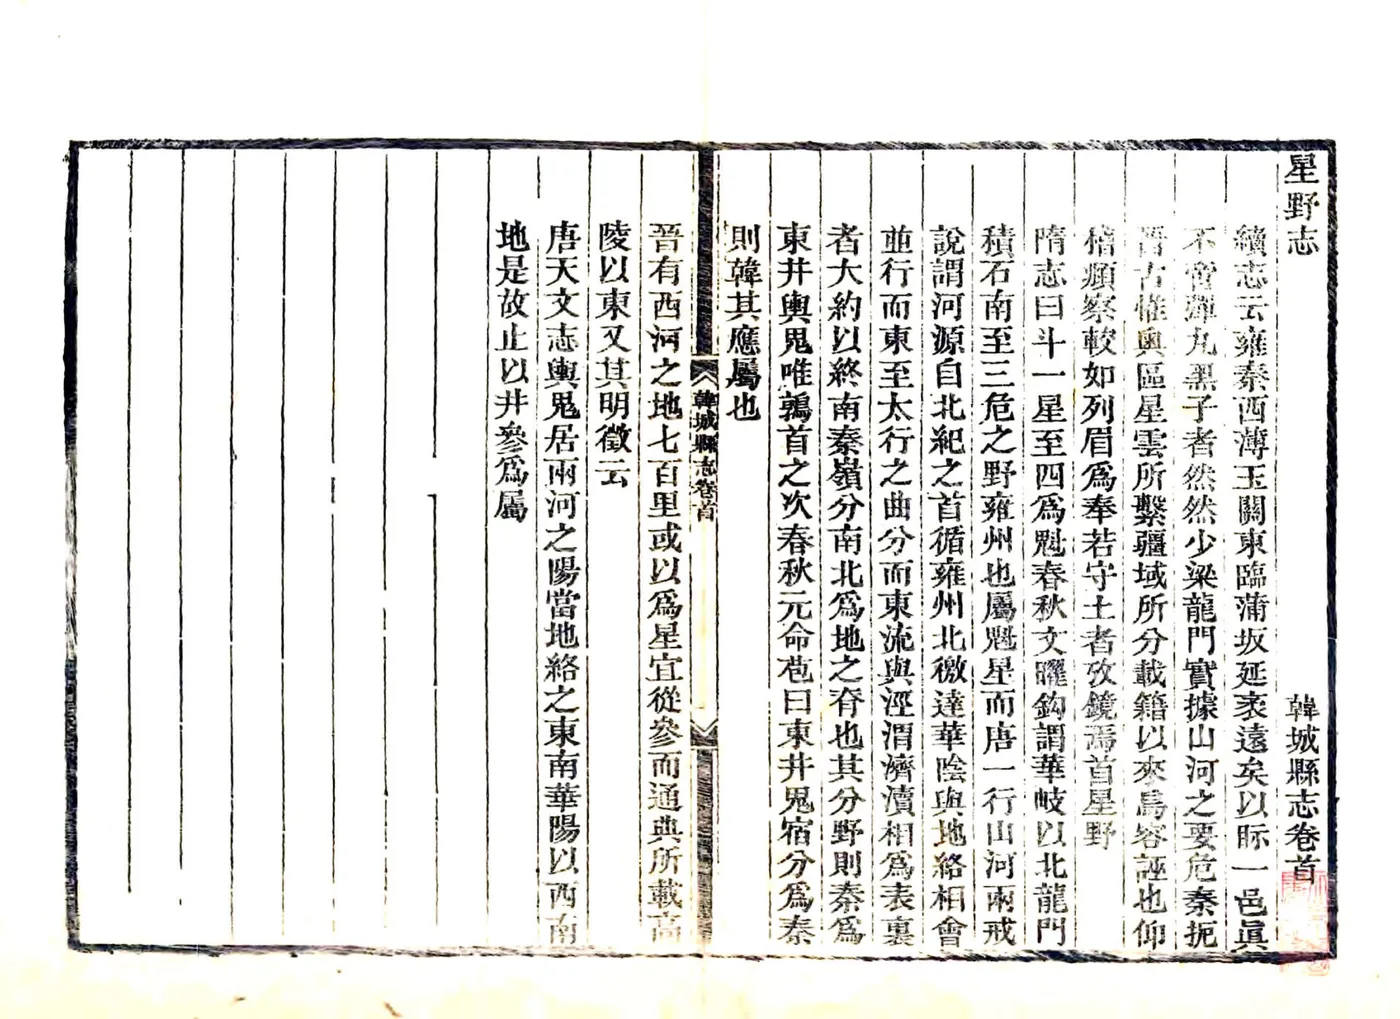 星野志 韓城縣志卷首
續志云雍秦西薄玉關東臨蒲坂延袤遠矣以眎一邑眞
不啻彈丸黑子者然然少梁龍門實據山河之要危秦扼
晉古惟奧區星雲所繫疆域所分載籍以來烏容誣也仰
稽頫察較如列眉爲奉若守土者攷鏡焉首星野
隋志曰斗一星至四爲魁春秋文曜鈎謂華岐以北龍門
積石南至三危之野雍州也屬魁星而唐一行山河兩戒
說謂河源自北紀之首循雍州北徼達華陰與地絡相會
並行而東至太行之曲分而東流與涇渭濟瀆相爲表裏
者大約以終南秦嶺分南北爲地之脊也其分野則秦爲
東井輿鬼唯鶉首之次春秋元命苞曰東井鬼宿分爲秦
則韓其應屬也
韓城縣志卷首
晉有西河之地七百里或以爲星宜從參而通典所載高
陵以東又其明徵云
唐天文志輿鬼居兩河之陽當地絡之東南華陽以西南
地是故止以井參爲屬